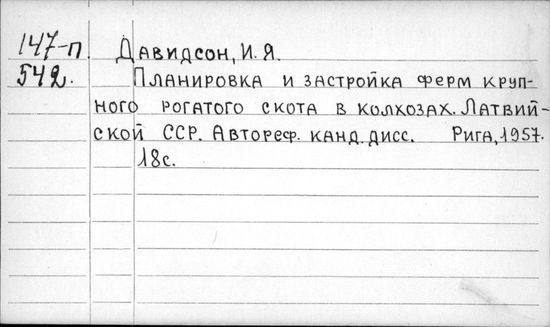 147-п. Давидсон, И. Я.
542. Планировка и застройка ферм круп-
ного рогатого скота в колхозах. Латвий-
ской ССР. Автореф. канд. дисс. Рига, 1957.
18с.